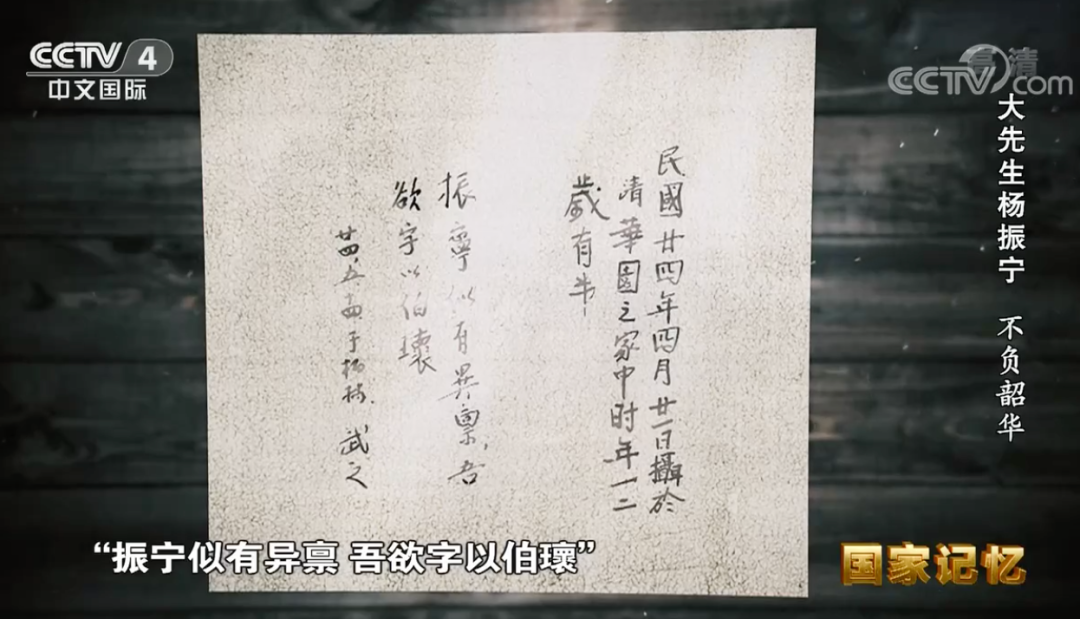 CCTV 4
中文国际
高清
CCTV.com
大先生杨振宁 不负韶华
民國廿四年四月廿一日攝於
清華園之家中时年一二
歲有半
振寧似有異稟,吾
欲字以伯瓌
廿四,五,于柏林 武之
“振宁似有异禀 吾欲字以伯瓌”
国家记忆